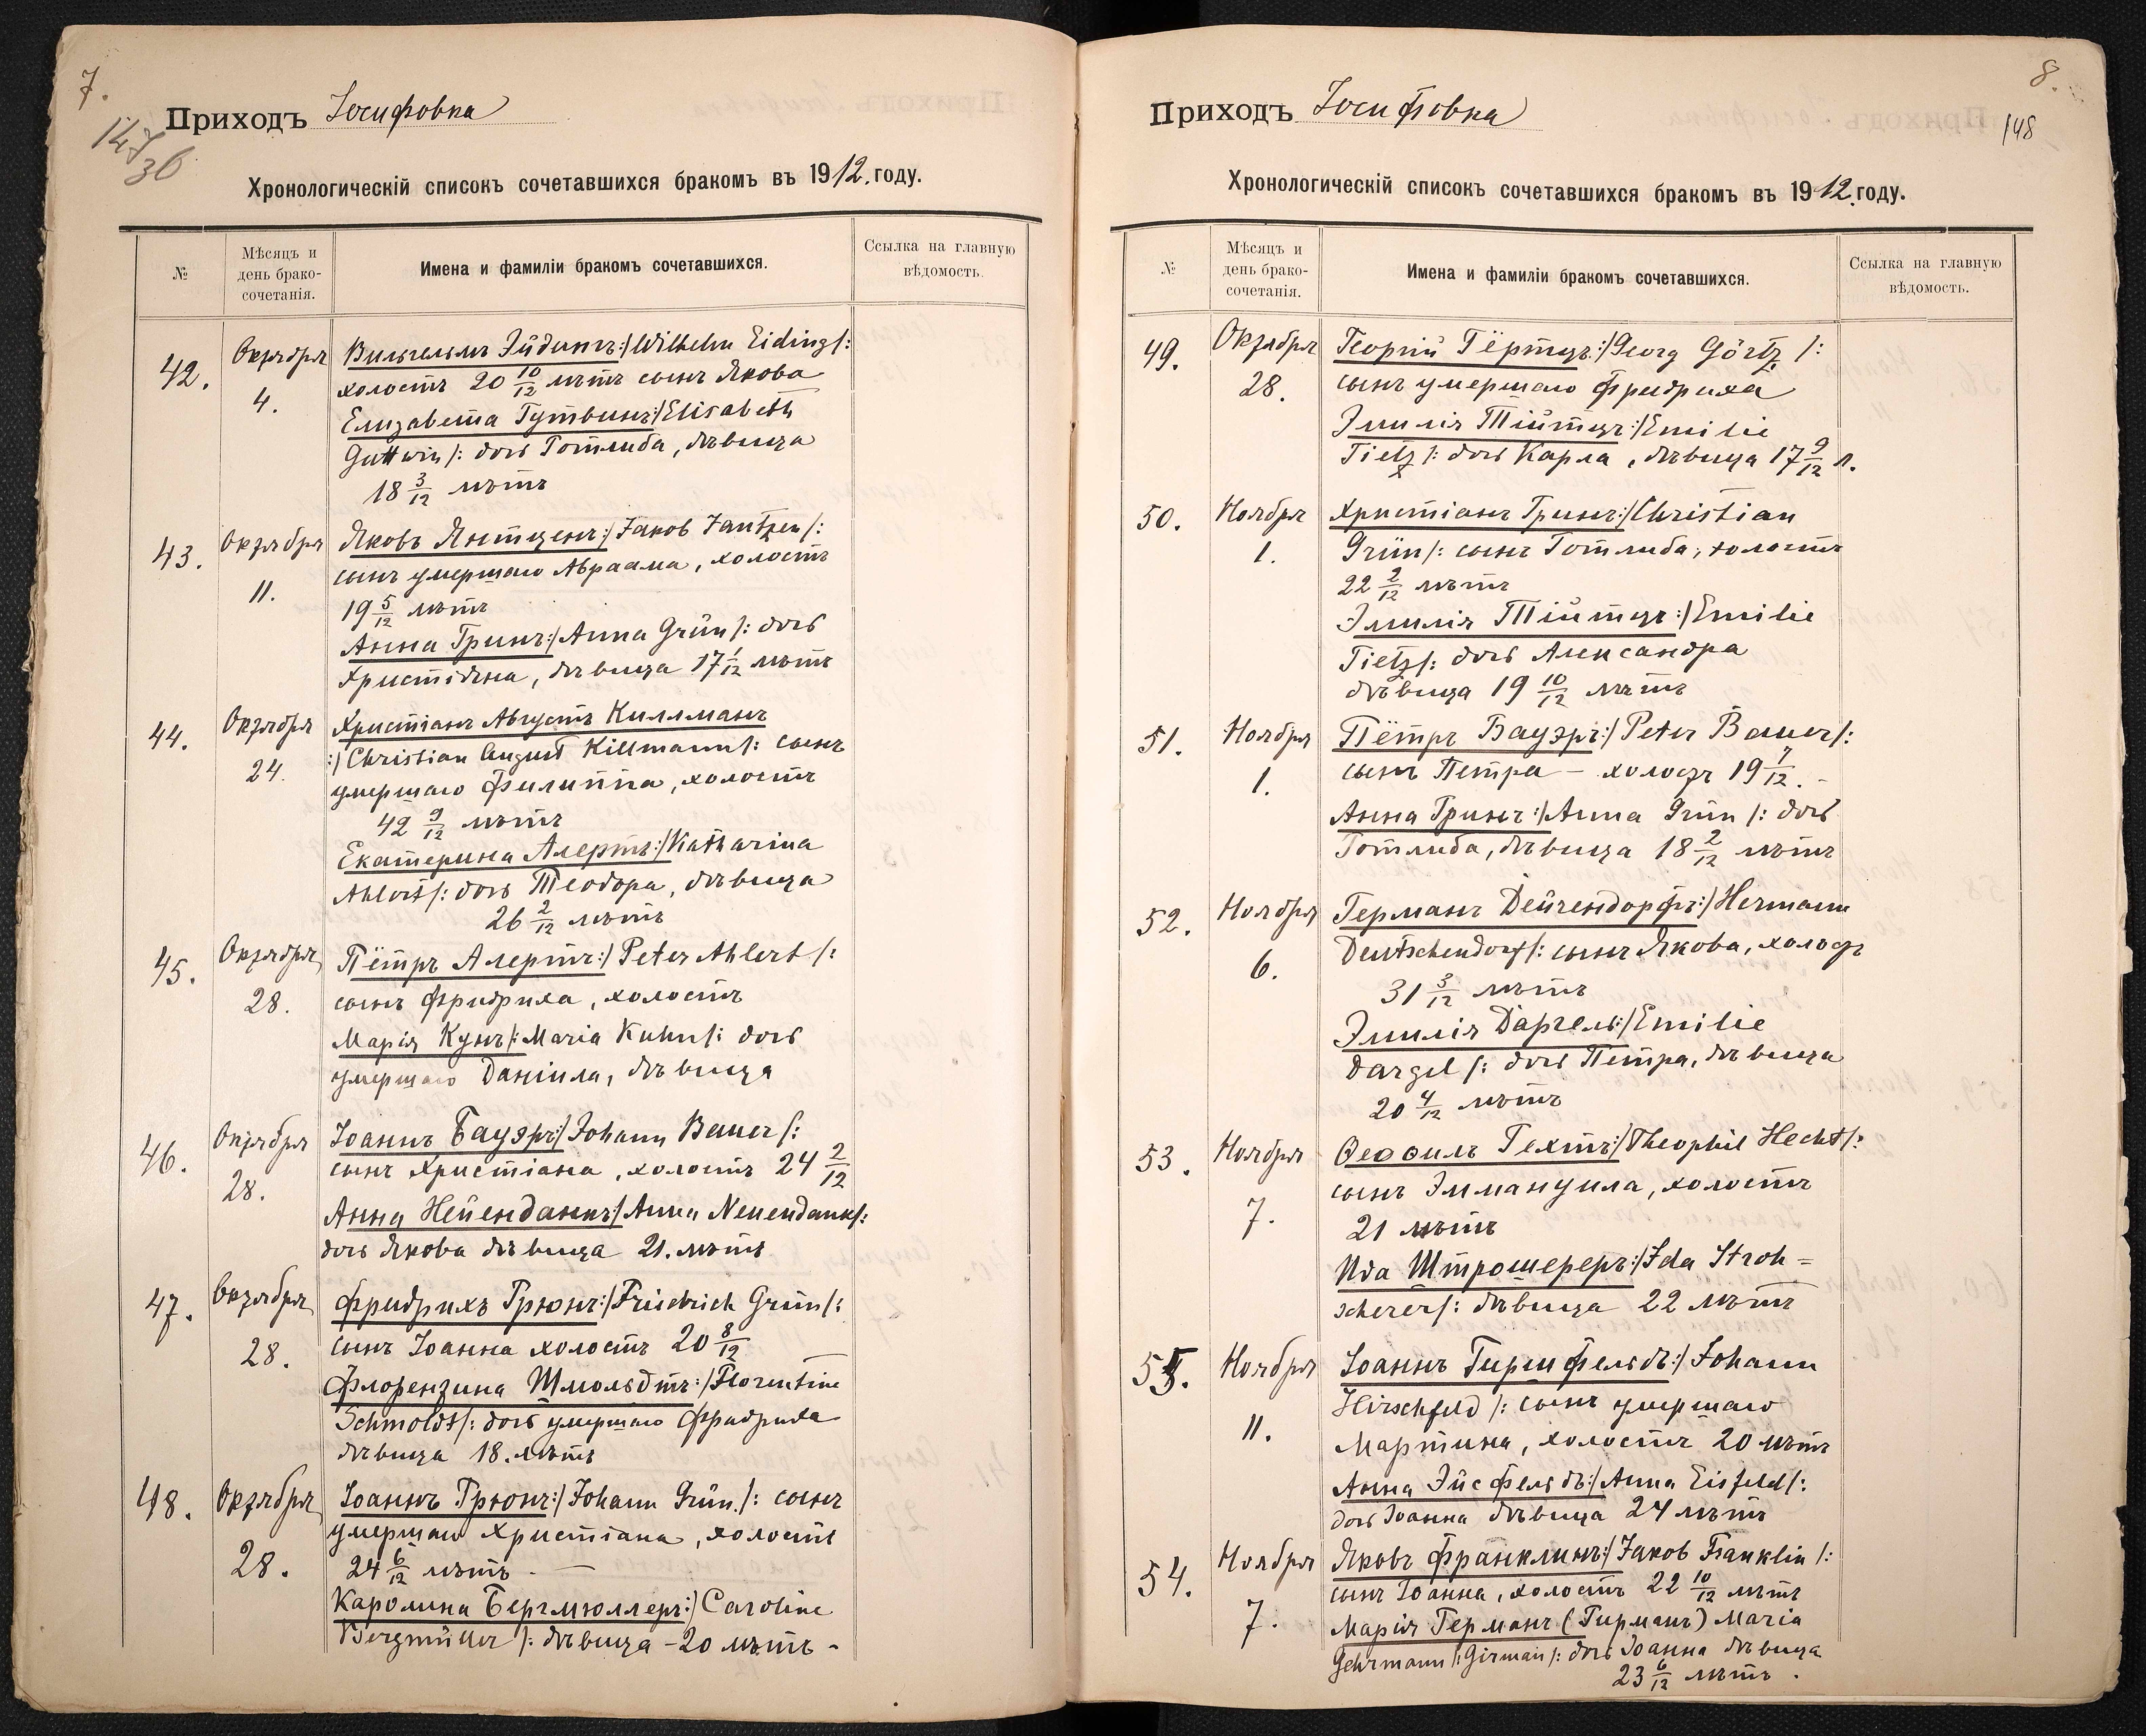 7.
147
36
Приходъ Іосифовка
Хронологическій списокъ сочетавшихся бракомъ въ 1912. году.
№
Мѣсяцъ и
день брако-
сочетанія.
Имена и фамиліи бракомъ сочетавшихся.
Ссылка на главную
вѣдомость.
42. Октября Вильгельмъ Эйдингъ:/Wilhelm Eiding/:
4. холостъ 20 10/12 лѣтъ сынъ Якова
Елизавета Гутвинъ:/Elisabeth
Guttwin/: дочь Готлиба, дѣвица
18 3/12 лѣтъ
43. Октября Яковъ Янтценъ:/Jakob Jantzen/:
11. сынъ умершаго Авраама, холостъ
19 5/12 лѣтъ
Анна Гринъ:/Anna Grün/: дочь
Христіана, дѣвица 17 1/12 лѣтъ
44. Октября Христіанъ Августъ Киллманъ
24. :/Christian August Killmann/: сынъ
умершаго Филиппа, холостъ
42 9/12 лѣтъ
Екатерина Алертъ:/Katharina
Ahlert/: дочь Теодора, дѣвица
26 2/12 лѣтъ
45. Октября Пётръ Алертъ:/Peter Ahlert/:
28. сынъ Фридриха, холостъ
Марія Кунъ/:Maria Kuhn/: дочь
умершаго Даніила, дѣвица
46. Октября Іоаннъ Бауэръ:/Johann Bauer/:
28. сынъ Христіана, холостъ 24 2/12
Анна Нейенданкъ:/Anna Neuendank/:
дочь Якова дѣвица 21. лѣтъ
47. Октября Фридрихъ Грюнъ:/Friedrich Grün/:
28. сынъ Іоанна холостъ 20 8/12
Флорентина Шмольдтъ:/Florentine
Schmoldt/: дочь умершаго Фридриха
дѣвица 18. лѣтъ
48. Октября Іоаннъ Грюнъ:/Johann Grün./: сынъ
умершаго Христіана, холостъ
28. 24 6/12 лѣтъ. —
Каролина Бергмюллеръ:/Caroline
Bergmüller/: дѣвица - 20 лѣтъ -
8.
148
Приходъ Іосифовка
Хронологическій списокъ сочетавшихся бракомъ въ 1912. году.
№
Мѣсяцъ и
день брако-
сочетанія.
Имена и фамиліи бракомъ сочетавшихся.
Ссылка на главную
вѣдомость.
49. Октября Георгій Гёртцъ:/Georg Görtz/:
28. сынъ умершаго Фридриха
Эмилія Тійтцъ:/Emilie
Tietz/: дочь Карла, дѣвица 17 9/12 л.
50. Ноября Христіанъ Гринъ:/Christian
1. Grün/: сынъ Готлиба, холостъ
22 2/12 лѣтъ
Эмилія Тійтцъ:/Emilie
Tietz/: дочь Александра
дѣвица 19 10/12 лѣтъ
51. Ноября Пётръ Бауэръ:/Peter Bauer/:
1. сынъ Петра - холостъ 19 7/12. -
Анна Гринъ:/Anna Grün/: дочь
Готлиба, дѣвица 18 2/12 лѣтъ
52. Ноября Германъ Дейчендорфъ:/Hermann
6. Deutschendorf/: сынъ Якова, холостъ
31 3/12 лѣтъ
Эмилія Даргель:/Emilie
Dargel/: дочь Петра, дѣвица
20 4/12 лѣтъ
53. Ноября Ѳеофилъ Гехтъ:/Theophil Hecht/:
сынъ Эммануила, холостъ
7. 21 лѣтъ
Ида Штрошереръ:/Ida Stroh=
scherer/: дѣвица 22 лѣтъ
55. Ноября Іоаннъ Гиршфельдъ:/Johann
Hirschfeld/: сынъ умершаго
11. Мартина, холостъ 20 лѣтъ
Анна Эйсфельдъ:/Anna Eisfeld/:
дочь Іоанна дѣвица 24 лѣтъ
54. Ноября Яковъ Франклинъ:/Jakob Franklin/:
сынъ Іоанна, холостъ 22 10/12 лѣтъ
7. Марія Германъ (Гирманъ) Maria
Gehrmann/:Girman/: дочь Іоанна дѣвица
23 6/12 лѣтъ.